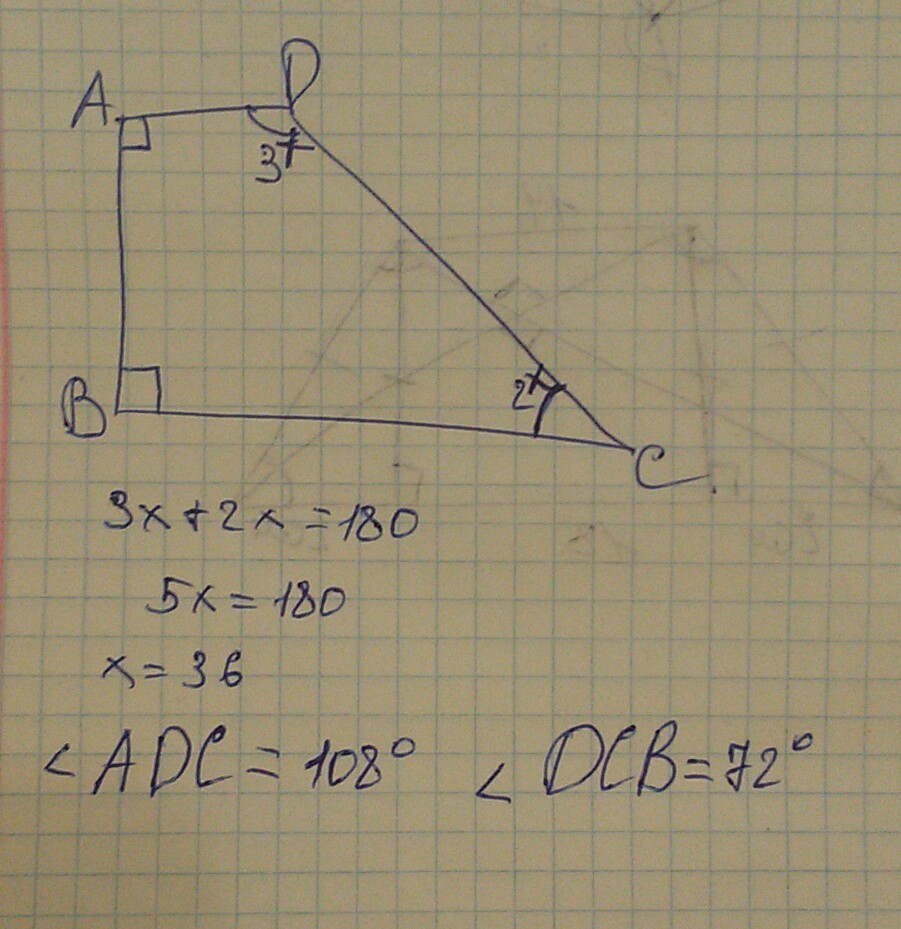 A D
3x
2x
B
C
3x + 2x = 180
5x = 180
x = 36
< ADC = 108° < DCB = 72°